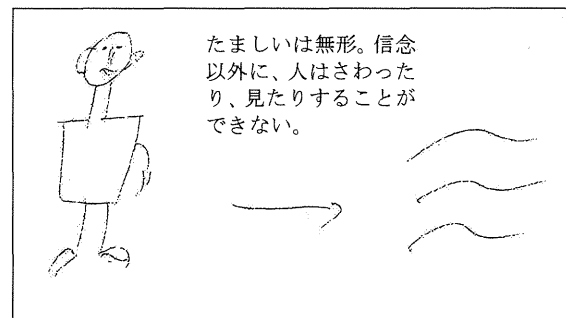 たましいは無形。信念
以外に、人はさわった
り、見たりすることが
できない。